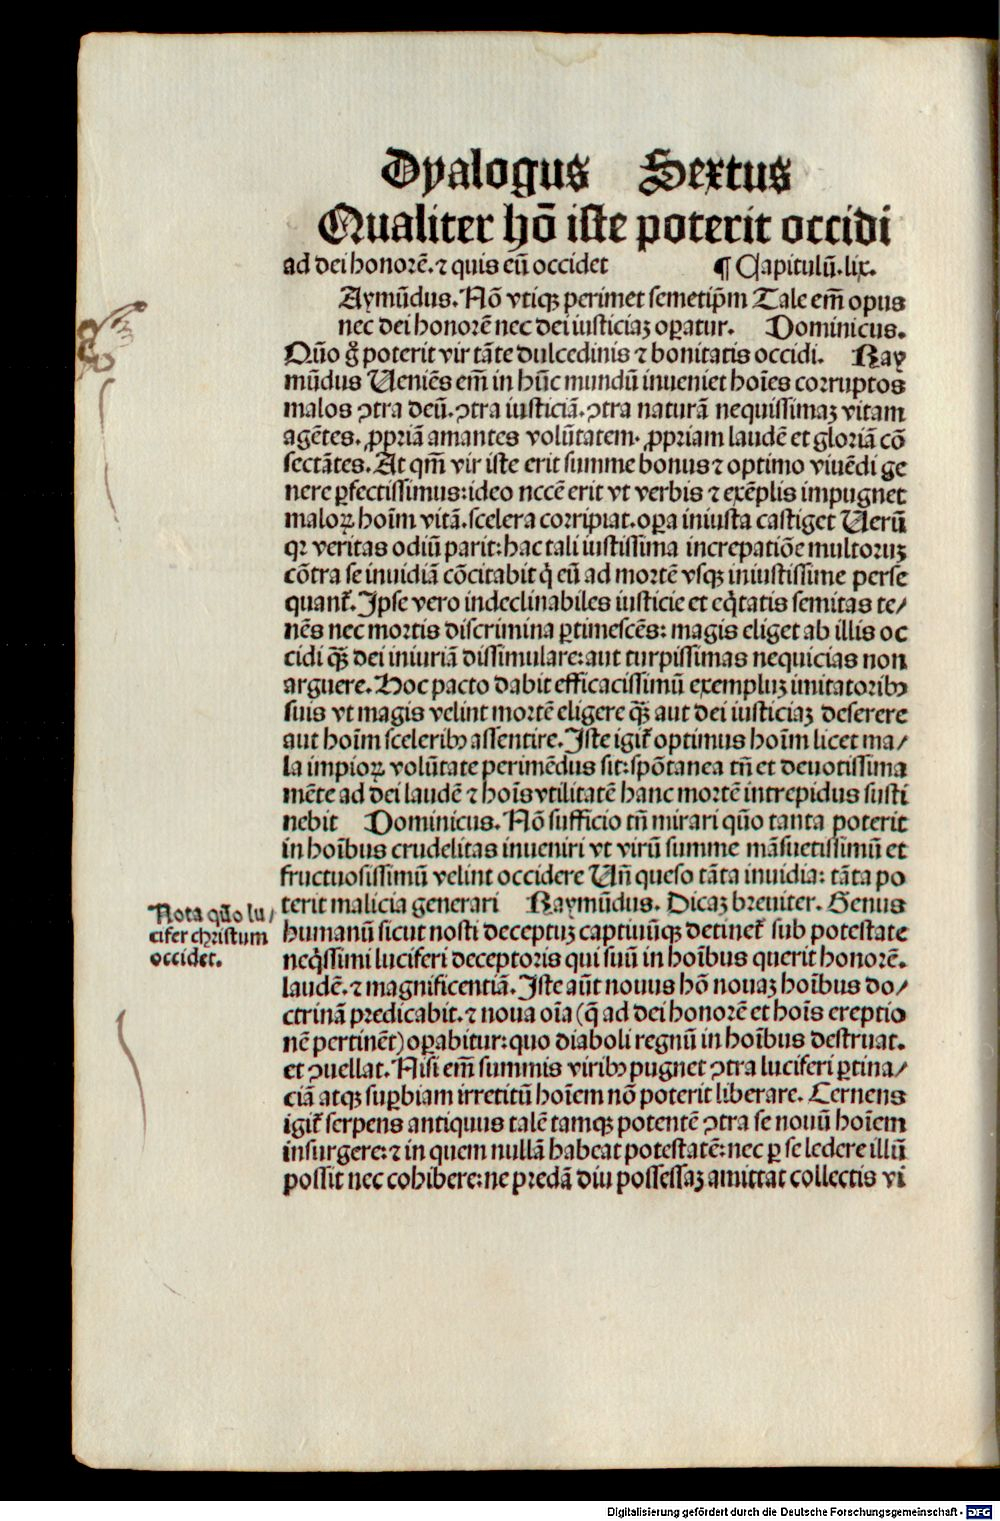 Dyalogus Sextus
Qualiter hō iste poterit occidi
ad dei honorē. ⁊ quis eū occidet ¶ Capitulū. lix.
Aymūdus. Nō vtiqꝫ perimet semetip̄m Tale em̄ opus
nec dei honorē nec dei iusticiaꝫ oꝑatur. Dominicus.
Quō g̊ poterit vir tāte dulcedinis ⁊ bonitatis occidi. Ray
mūdus Ueniēs em̄ in hūc mundū inueniet hoīes corruptos
malos ꝯtra deū. ꝯtra iusticiā. ꝯtra naturā nequissimaꝫ vitam
agētes. ꝓpriā amantes volūtatem. ꝓpriam laudē et gloriā cō
sectātes. At qm̄ vir iste erit summe bonus ⁊ optimo viuēdi ge
nere ꝑfectissimus: ideo nccē erit vt verbis ⁊ exēplis impugnet
maloꝝ hoīm vitā. scelera corripiat. oꝑa iniusta castiget Uerū
qꝛ veritas odiū parit: hac tali iustissima increpatiōe multoruꝫ
cōtra se inuidiā cōcitabit q̇ eū ad mortē vsqꝫ iniustissime perse
quant᷑. Ipse vero indeclinabiles iusticie et eq̇tatis semitas te⸗
nēs nec mortis discrimina ꝑtimescēs: magis eliget ab illis oc
cidi qꝫ̄ dei iniuriā dissimulare: aut turpissimas nequicias non
arguere. Hoc pacto dabit efficacissimū exempluꝫ imitatoribꝰ
suis vt magis velint mortē eligere qꝫ̄ aut dei iusticiaꝫ deserere
aut hoīm sceleribꝰ assentire. Iste igit᷑ optimus hoīm licet ma⸗
la impioꝝ volūtate perimēdus sit: spōtanea tn̄ et deuotissima
mēte ad dei laudē ⁊ hoīs vtilitatē hanc mortē intrepidus susti
nebit Dominicus. Nō sufficio tn̄ mirari quō tanta poterit
in hoībus crudelitas inueniri vt virū summe māsuetissimū et
fructuosissimū velint occidere Un̄ queso tāta inuidia: tāta po
terit malicia generari Raymūdus. Dicaꝫ breuiter. Genus
humanū sicut nosti deceptuꝫ captiuūqꝫ detinet᷑ sub potestate
neq̇ssimi luciferi deceptoris qui suū in hoībus querit honorē.
laudē. ⁊ magnificentiā. Iste aūt nouus hō nouaꝫ hoībus do⸗
ctrinā predicabit. ⁊ noua oīa (q̄ ad dei honorē et hoīs ereptio
nē pertinēt) oꝑabitur: quo diaboli regnū in hoībus destruat.
et ꝯuellat. Nisi em̄ summis viribꝰ pugnet ꝯtra luciferi ꝑtina⸗
ciā atqꝫ suꝑbiam irretitū hoīem nō poterit liberare. Cernens
igit᷑ serpens antiquus talē tamqꝫ potentē ꝯtra se nouū hoīem
insurgere: ⁊ in quem nullā habeat potestatē: nec ꝑ se ledere illū
possit nec cohibere: ne predā diu possessaꝫ amittat collectis vi
Nota quō lu⸗
cifer christum
occidet.
Digitalisierung gefördert durch die Deutsche Forschungsgemeinschaft - DFG